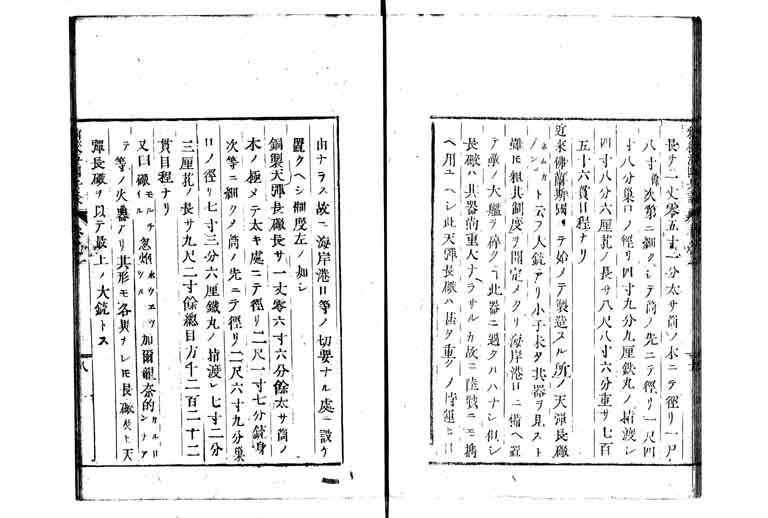 長サ一丈零五寸一分太サ筒ノ本ニテ徑リ一尺
八寸餘次第ニ細クシテ筒ノ先ニテ徑リ一尺四
寸八分巢口ノ徑リ四寸九分九厘鉱丸ノ揞渡シ
四寸八分六厘扎ノ長サ八尺八寸六分重サ七百
五十六貫目程ナリ
近來佛蘭斯國ニテ始ノテ製造スル所ノ天彈長礮
ト云フ大銃アリ小子未タ其器ヲ見スト
雖モ粗其制度ヲ聞定メタリ海岸港口ニ備ヘ置
テ夷ノ大艦ヲ碎クニ此器ニ過タルハナシ但シ
長礮ハ其器的重大ナラサルカ故ニ陸戰ニモ携
ヘ用ユヘシ此天彈長礮ハ甚タ重クノ持運ヒ
由ナラス故ニ海岸港口等ノ切要ナル處ニ設ケ
置クヘシ細度左ノ如シ
銅製天彈長礮長サ一丈零六寸六分餘太サ筒ノ
木ノ極メテ太キ處ニテ徑リ二尺一寸七分銃身
次等ニ細クメ筒ノ先ニテ徑リ二尺六寸九分巢
口ノ徑リ七寸三分六厘鐵丸ノ揞渡シ七寸二分
三厘扎ノ長サ九尺二寸餘總目方千二百二十二
貫目程ナリ
又曰礮モルチール忽炮ホウヰツスル加爾龍奈的カルロンナア
テ等ノ火器アリ其形モ各異ナレモ長礮天
彈長礮ヲ以テ最上ノ大銃トス
八